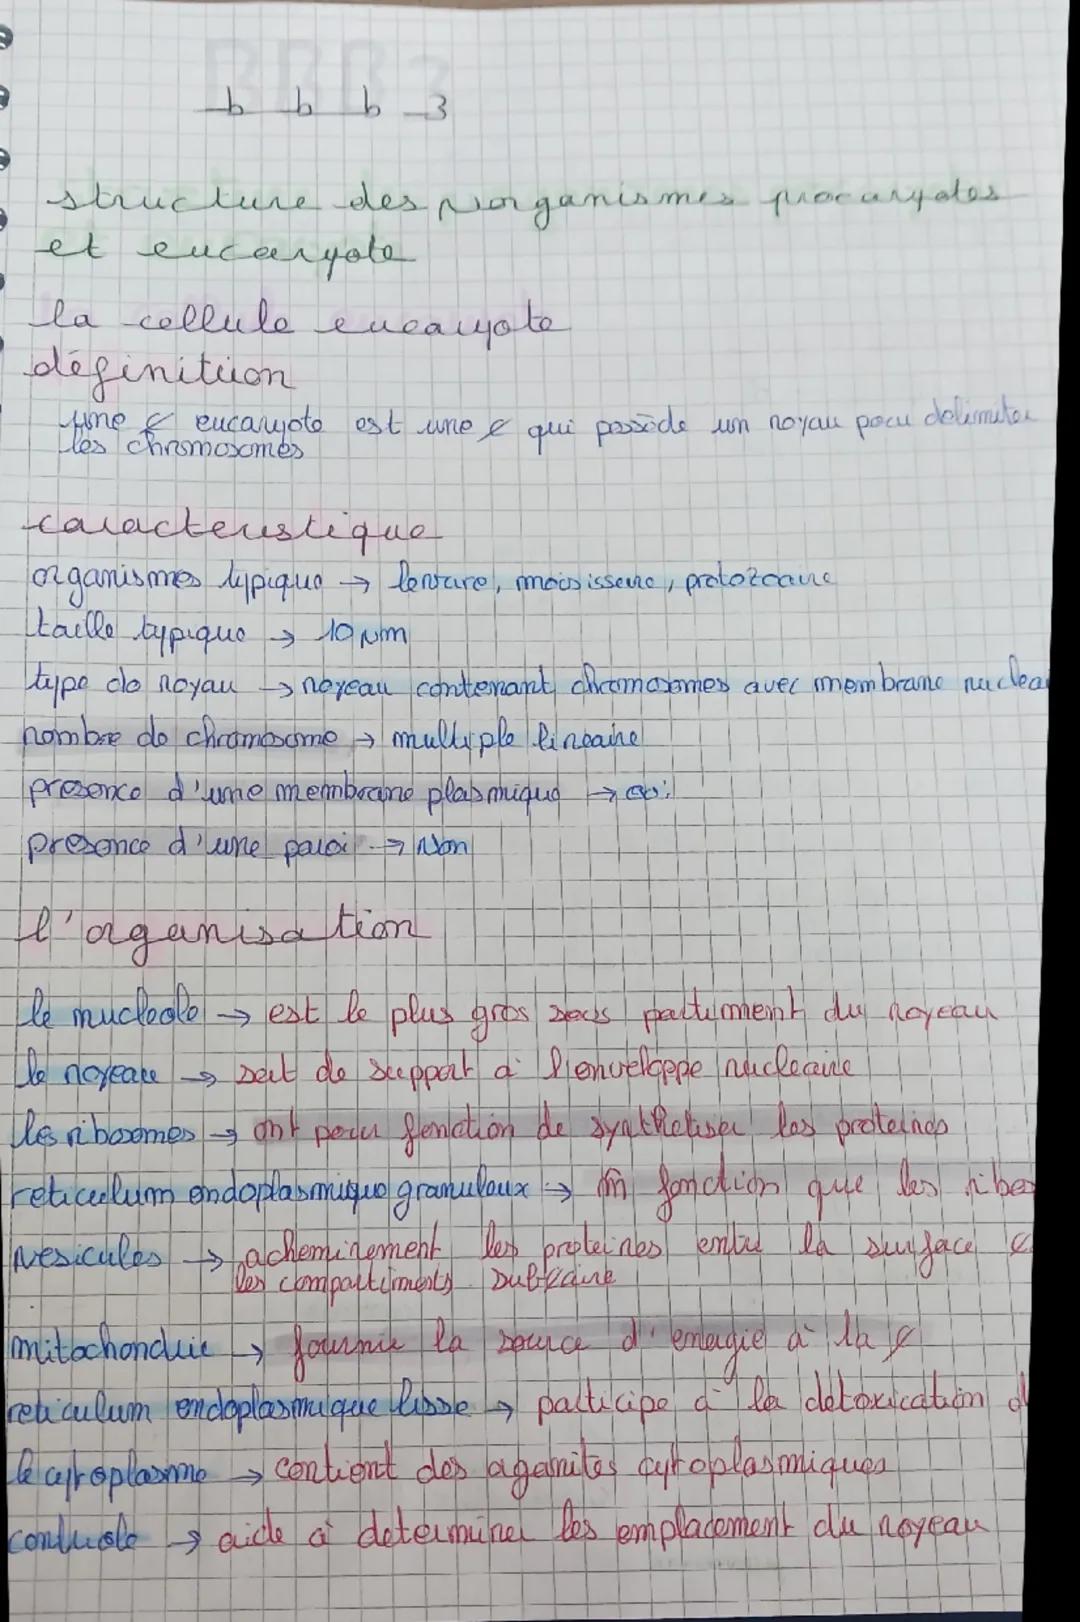 b b b 3
structure des norganismes procaryotes
et eucaryote
la cellule eucaryote
définition
une ¢ eucaryote est une ¢ qui possède un noyau pour delimiter
les chromosomes
caracteristique
organismes typique → levure, moisissure, protozoaire
taille typique → 10 µm
type de noyau → noyeau contenant chromosomes avec membrane nuclea
nombre de chromosome → multiple lineaire
presence d'une membrane plasmique → oui
presence d'une paroi → Non
l'organisation
le nucleole → est le plus gros sous partiment du noyeau
le noyeau → sert de support à l'enveloppe nucleaire
les ribosomes → ont pour fonction de synthetiser les proteines
reticulum endoplasmique granuleux → m̂ fonction que les ribos
vesicules → acheminement les proteines entre la surface ¢
les compartiments
mitochondrie → fournir la source d'energie à la ¢
reticulum endoplasmique lisse → participe à la detoxication d
le cytoplasme → contient des cytoplasmiques
centriole → aide à determiner les emplacement du noyeau